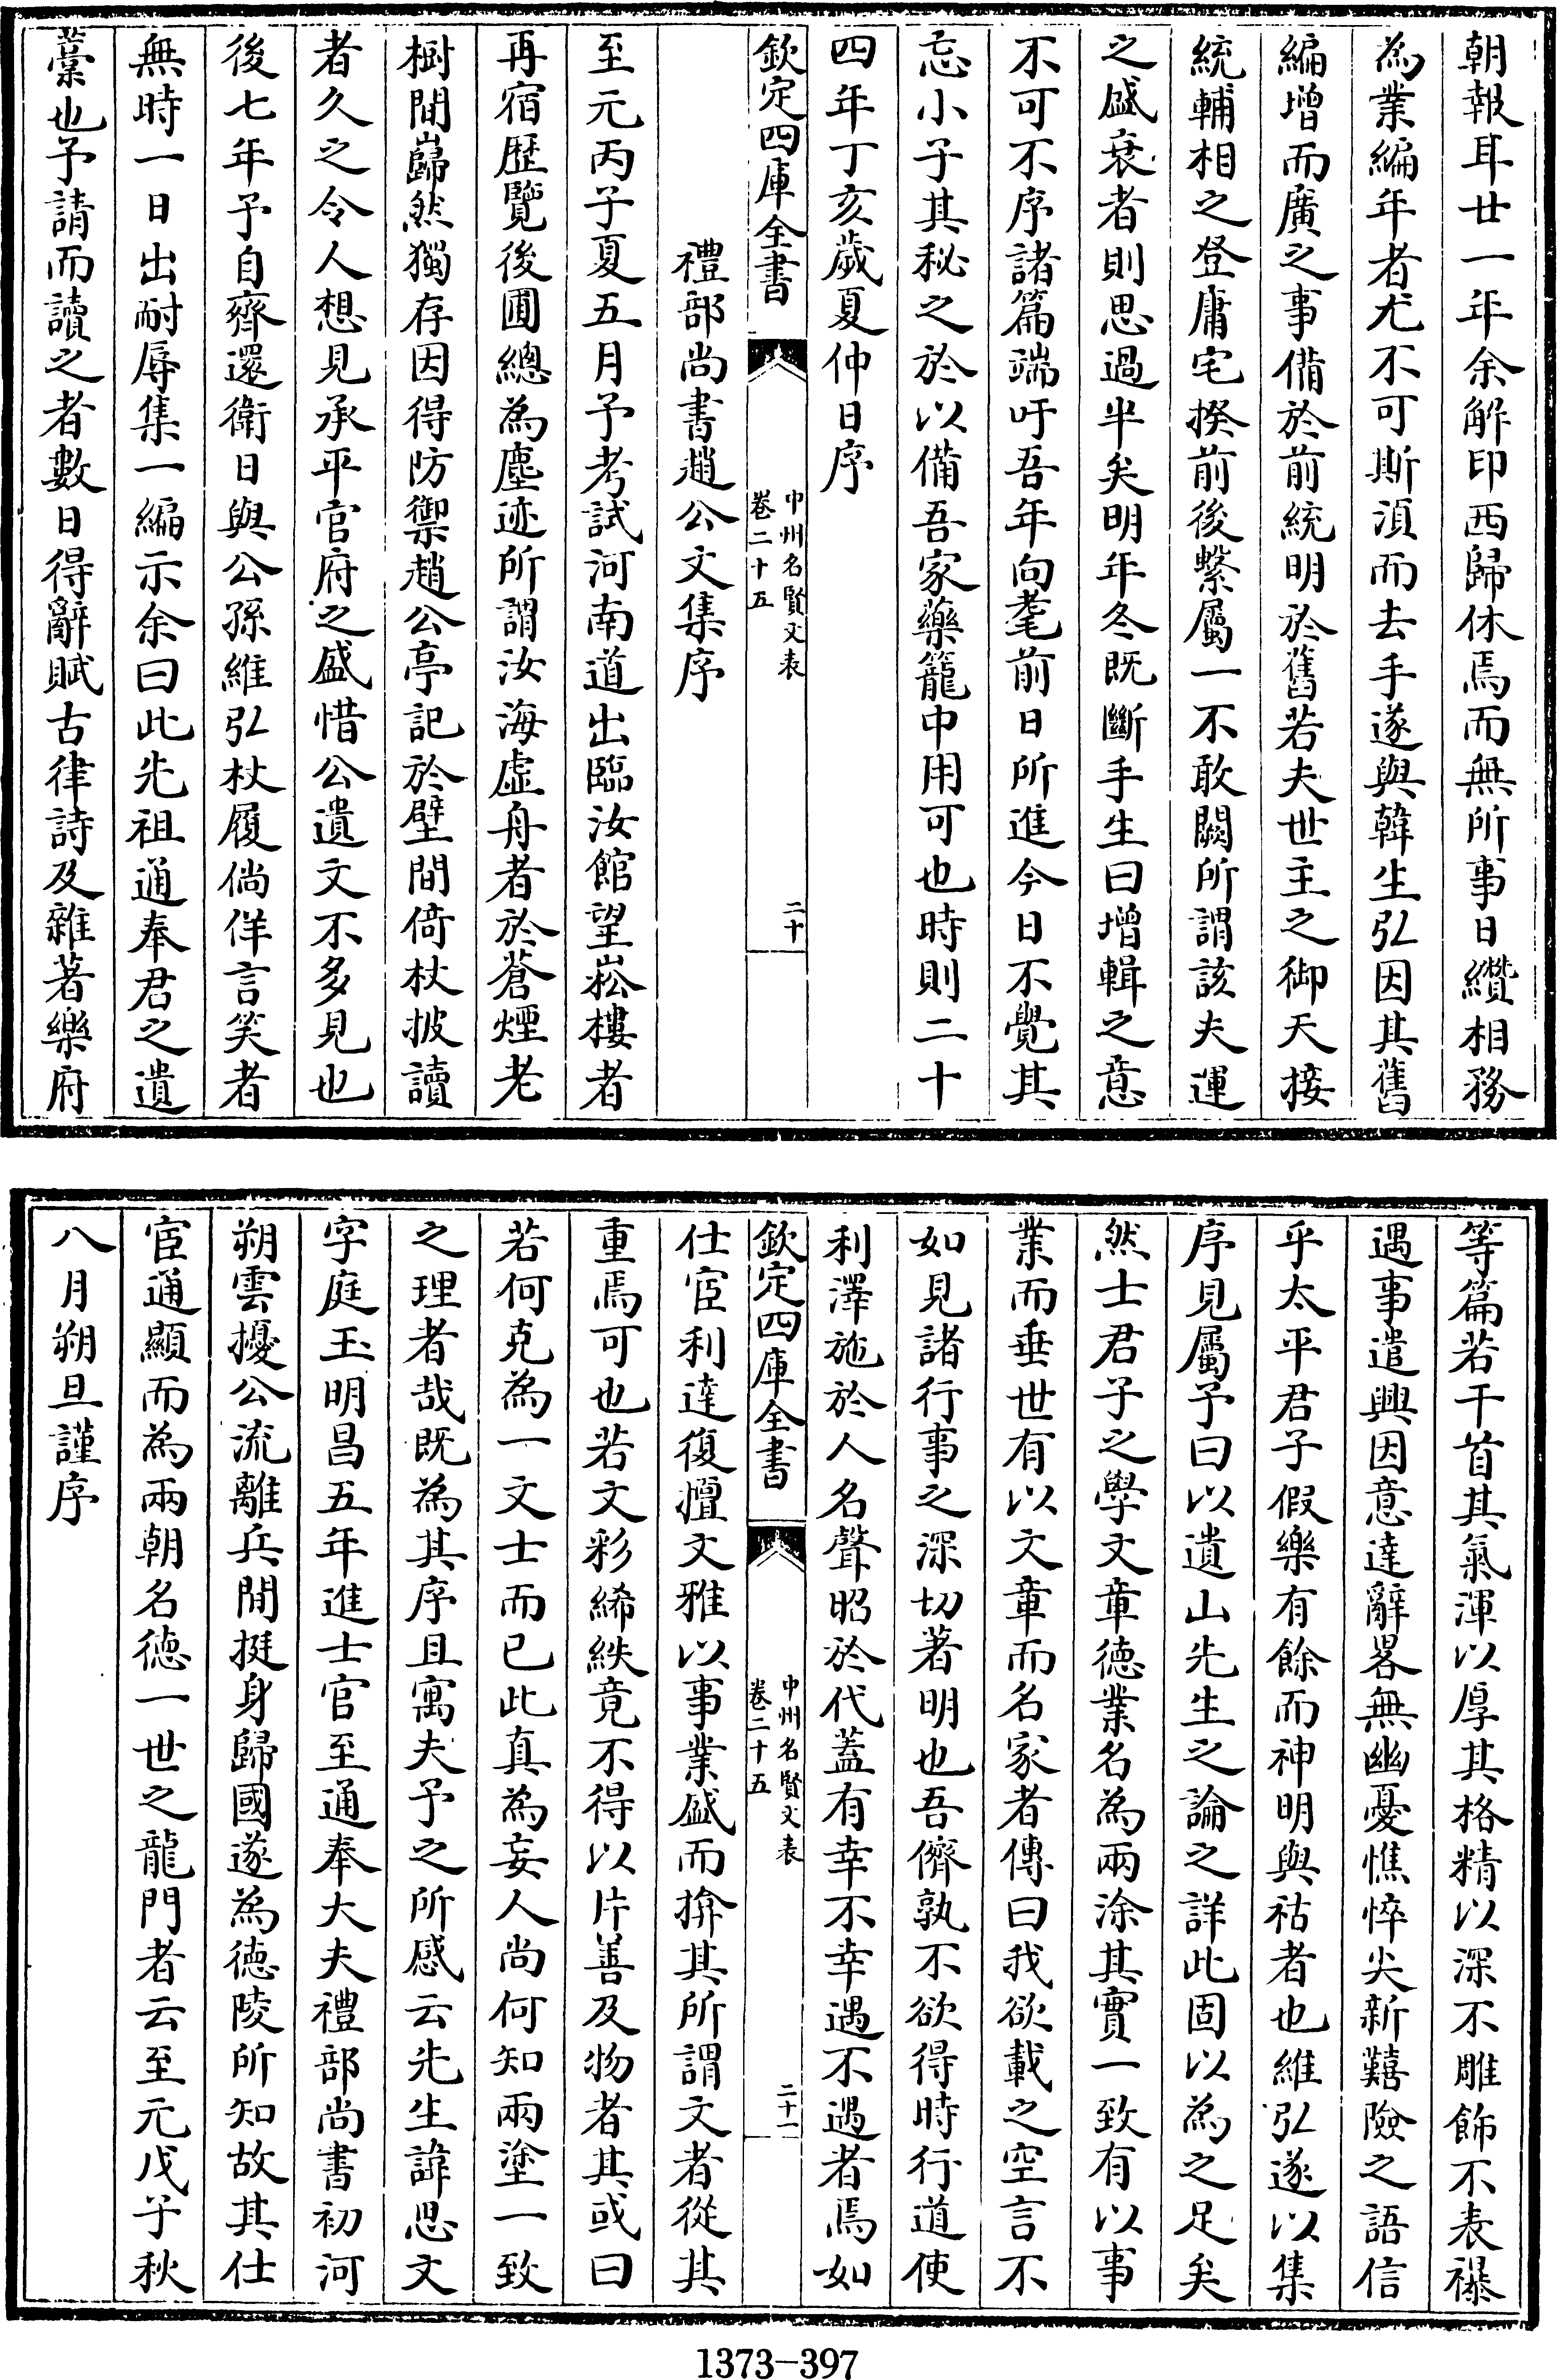 朝報耳廿一年余解印西歸休焉而無所事日纘相務
為業編年者尤不可斯湏而去手遂與韓生弘因其舊
編增而廣之事備於前統明於舊若夫世主之御天接
統輔相之登庸宅揆前後繫屬一不敢闕所謂該夫運
之盛衰者則思過半矣明年冬既斷手生曰增輯之意
不可不序諸篇端吁吾年向耄前日所進今日不覺其
忘小子其秘之於以備吾家藥籠中用可也時則二十
四年丁亥歲夏仲日序
欽定四庫全書
中州名賢文表
卷二十五
二十
禮部尚書趙公文集序
至元丙子夏五月予考試河南道出臨汝館望崧樓者
再宿歴覽後圃總為塵迹所謂汝海虛舟者於蒼煙老
樹間巋然獨存因得防禦趙公亭記於壁間倚杖披讀
者久之令人想見承平官府之盛惜公遺文不多見也
後七年予自齊還衛日與公孫維弘杖履倘佯言笑者
無時一日出耐辱集一編示余曰此先祖通奉君之遺
藁也予請而讀之者數日得辭賦古律詩及雜著樂府
等篇若干首其氣渾以厚其格精以深不雕飾不表襮
遇事遣興因意達辭畧無幽憂憔悴尖新囏險之語信
乎太平君子假樂有餘而神明與祜者也維弘遂以集
序見屬予曰以遺山先生之論之詳此固以為之足矣
然士君子之學文章德業名為兩涂其實一致有以事
業而垂世有以文章而名家者傳曰我欲載之空言不
如見諸行事之深切著明也吾儕孰不欲得時行道使
利澤施於人名聲昭於代蓋有幸不幸遇不遇者焉如
欽定四庫全書
中州名賢文表
卷二十五
二十一
仕宦利達復擅文雅以事業盛而揜其所謂文者從其
重焉可也若文彩絺紩竟不得以片善及物者其或曰
若何克為一文士而已此真為妄人尚何知兩塗一致
之理者哉既為其序且寓夫予之所感云先生諱思文
字庭玉明昌五年進士官至通奉大夫禮部尚書初河
朔雲擾公流離兵間挺身歸國遂為德陵所知故其仕
宦通顯而為兩朝名德一世之龍門者云至元戊子秋
八月朔旦謹序
1373-397